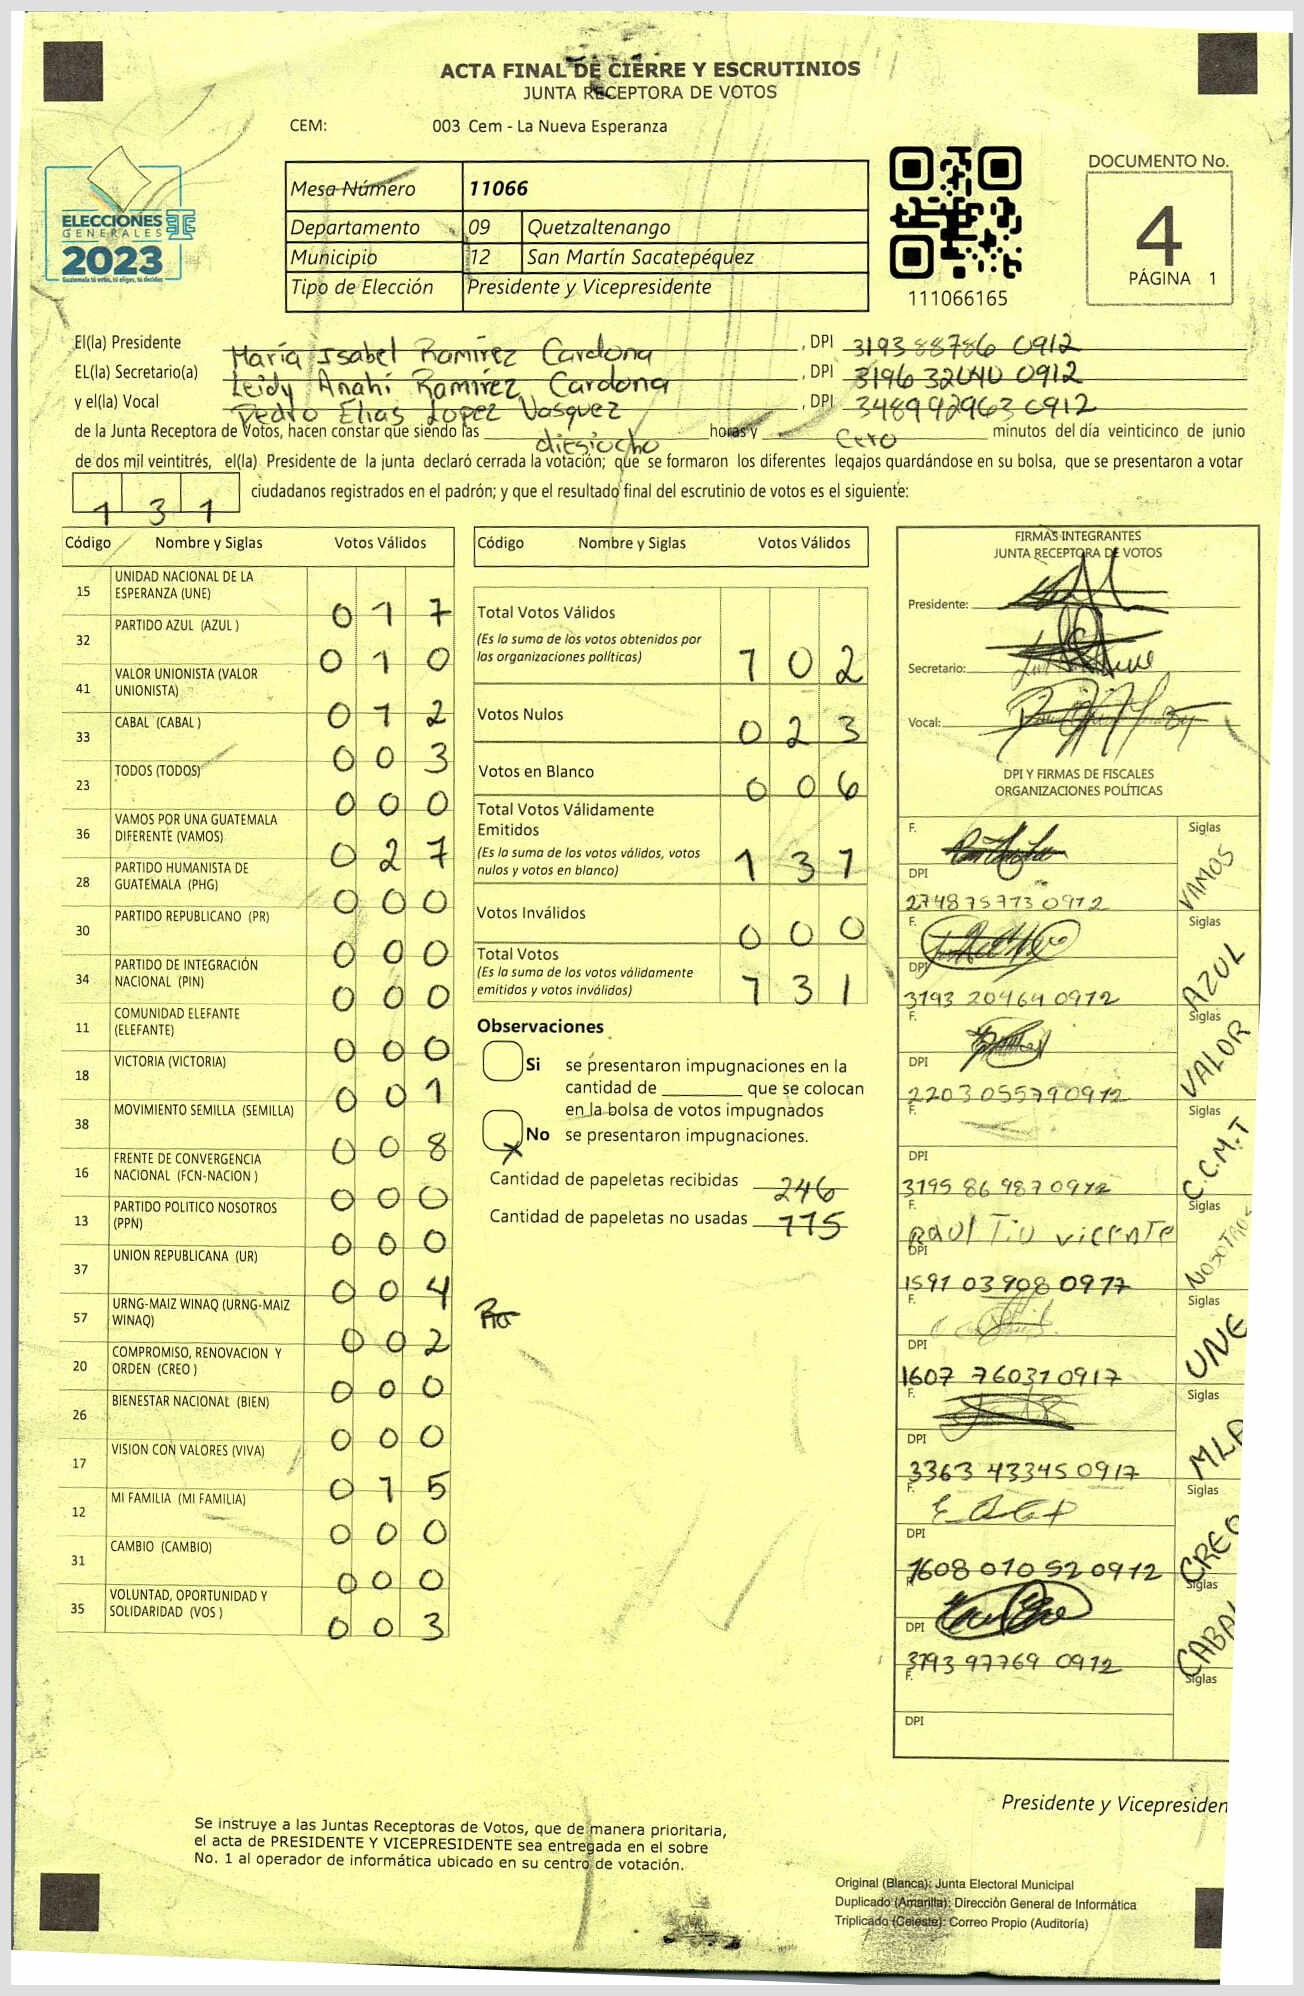 ACTA FINAL DE CIERRE Y ESCRUTINIOS
JUNTA RECEPTORA DE VOTOS
CEM: 003 Cem - La Nueva Esperanza
ELECCIONES
GENERALES
2023
Guatemala tú votas, tú eliges, tú decides
Mesa Número 11066
Departamento 09 Quetzaltenango
Municipio 12 San Martín Sacatepéquez
Tipo de Elección Presidente y Vicepresidente
111066165
DOCUMENTO No.
4
PÁGINA 1
El(la) Presidente María Isabel Ramírez Cardona, DPI 3193 88786 0912
EL(la) Secretario(a) Leidy Anahí Ramírez Cardona, DPI 3196 32040 0912
y el(la) Vocal Pedro Elías Lopez Vasquez, DPI 3489 92963 0912
de la Junta Receptora de Votos, hacen constar que siendo las diesiocho horas y cero minutos del día veinticinco de junio
de dos mil veintitrés, el(la) Presidente de la junta declaró cerrada la votación; que se formaron los diferentes legajos guardándose en su bolsa, que se presentaron a votar
131 ciudadanos registrados en el padrón; y que el resultado final del escrutinio de votos es el siguiente:
Código Nombre y Siglas Votos Válidos
15 UNIDAD NACIONAL DE LA ESPERANZA (UNE) 017
32 PARTIDO AZUL (AZUL ) 010
41 VALOR UNIONISTA (VALOR UNIONISTA) 012
33 CABAL (CABAL ) 003
23 TODOS (TODOS) 000
36 VAMOS POR UNA GUATEMALA DIFERENTE (VAMOS) 027
28 PARTIDO HUMANISTA DE GUATEMALA (PHG) 000
30 PARTIDO REPUBLICANO (PR) 000
34 PARTIDO DE INTEGRACIÓN NACIONAL (PIN) 000
11 COMUNIDAD ELEFANTE (ELEFANTE) 000
18 VICTORIA (VICTORIA) 001
38 MOVIMIENTO SEMILLA (SEMILLA) 008
16 FRENTE DE CONVERGENCIA NACIONAL (FCN-NACION ) 000
13 PARTIDO POLITICO NOSOTROS (PPN) 000
37 UNION REPUBLICANA (UR) 004
57 URNG-MAIZ WINAQ (URNG-MAIZ WINAQ) 002
20 COMPROMISO, RENOVACION Y ORDEN (CREO ) 000
26 BIENESTAR NACIONAL (BIEN) 000
17 VISION CON VALORES (VIVA) 015
12 MI FAMILIA (MI FAMILIA) 000
31 CAMBIO (CAMBIO) 000
35 VOLUNTAD, OPORTUNIDAD Y SOLIDARIDAD (VOS ) 003
Código Nombre y Siglas Votos Válidos
Total Votos Válidos
(Es la suma de los votos obtenidos por
las organizaciones políticas) 102
Votos Nulos 023
Votos en Blanco 006
Total Votos Válidamente
Emitidos
(Es la suma de los votos válidos, votos
nulos y votos en blanco) 131
Votos Inválidos 000
Total Votos
(Es la suma de los votos válidamente
emitidos y votos inválidos) 131
Observaciones
Si se presentaron impugnaciones en la
cantidad de ________ que se colocan
en la bolsa de votos impugnados
x No se presentaron impugnaciones.
Cantidad de papeletas recibidas 246
Cantidad de papeletas no usadas 115
FIRMAS INTEGRANTES
JUNTA RECEPTORA DE VOTOS
Presidente:
Secretario:
Vocal:
DPI Y FIRMAS DE FISCALES
ORGANIZACIONES POLÍTICAS
F. Siglas VAMOS
DPI 2748 75773 0912
F. Siglas AZUL
DPI 3193 20464 0912
F. Siglas VALOR
DPI 2203 05579 0912
F. Siglas C.C.M.T
DPI 3195 86 987 0912
F. Raul Tiu vicente Siglas NOSOTROS
DPI 1591 03908 0917
F. Siglas UNE
DPI 1607 76031 0917
F. Siglas MLP
DPI 3363 43345 0917
F. Siglas CREO
DPI 1608 070 52 0912
F. Siglas CABAL
DPI 3193 97769 0912
F. Siglas
DPI
Presidente y Vicepresiden
Se instruye a las Juntas Receptoras de Votos, que de manera prioritaria,
el acta de PRESIDENTE Y VICEPRESIDENTE sea entregada en el sobre
No. 1 al operador de informática ubicado en su centro de votación.
Original (Blanca): Junta Electoral Municipal
Duplicado (Amarilla): Dirección General de Informática
Triplicado (Celeste): Correo Propio (Auditoría)